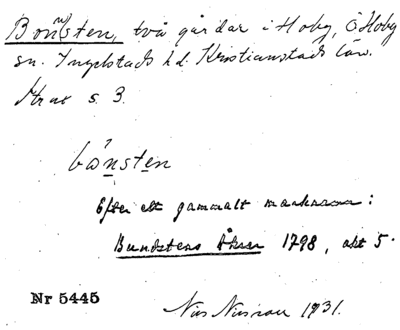 Bon(n)sten, två gårdar i Hoby, Ö Hoby
sn. Ingelstads hd. Kristianstads län.
s. 3.
bo̊nsten
Efter ett gammalt marknamn:
Bundstens Åkrar 1798, akt 5.
Nr 5445
Nils 1931.